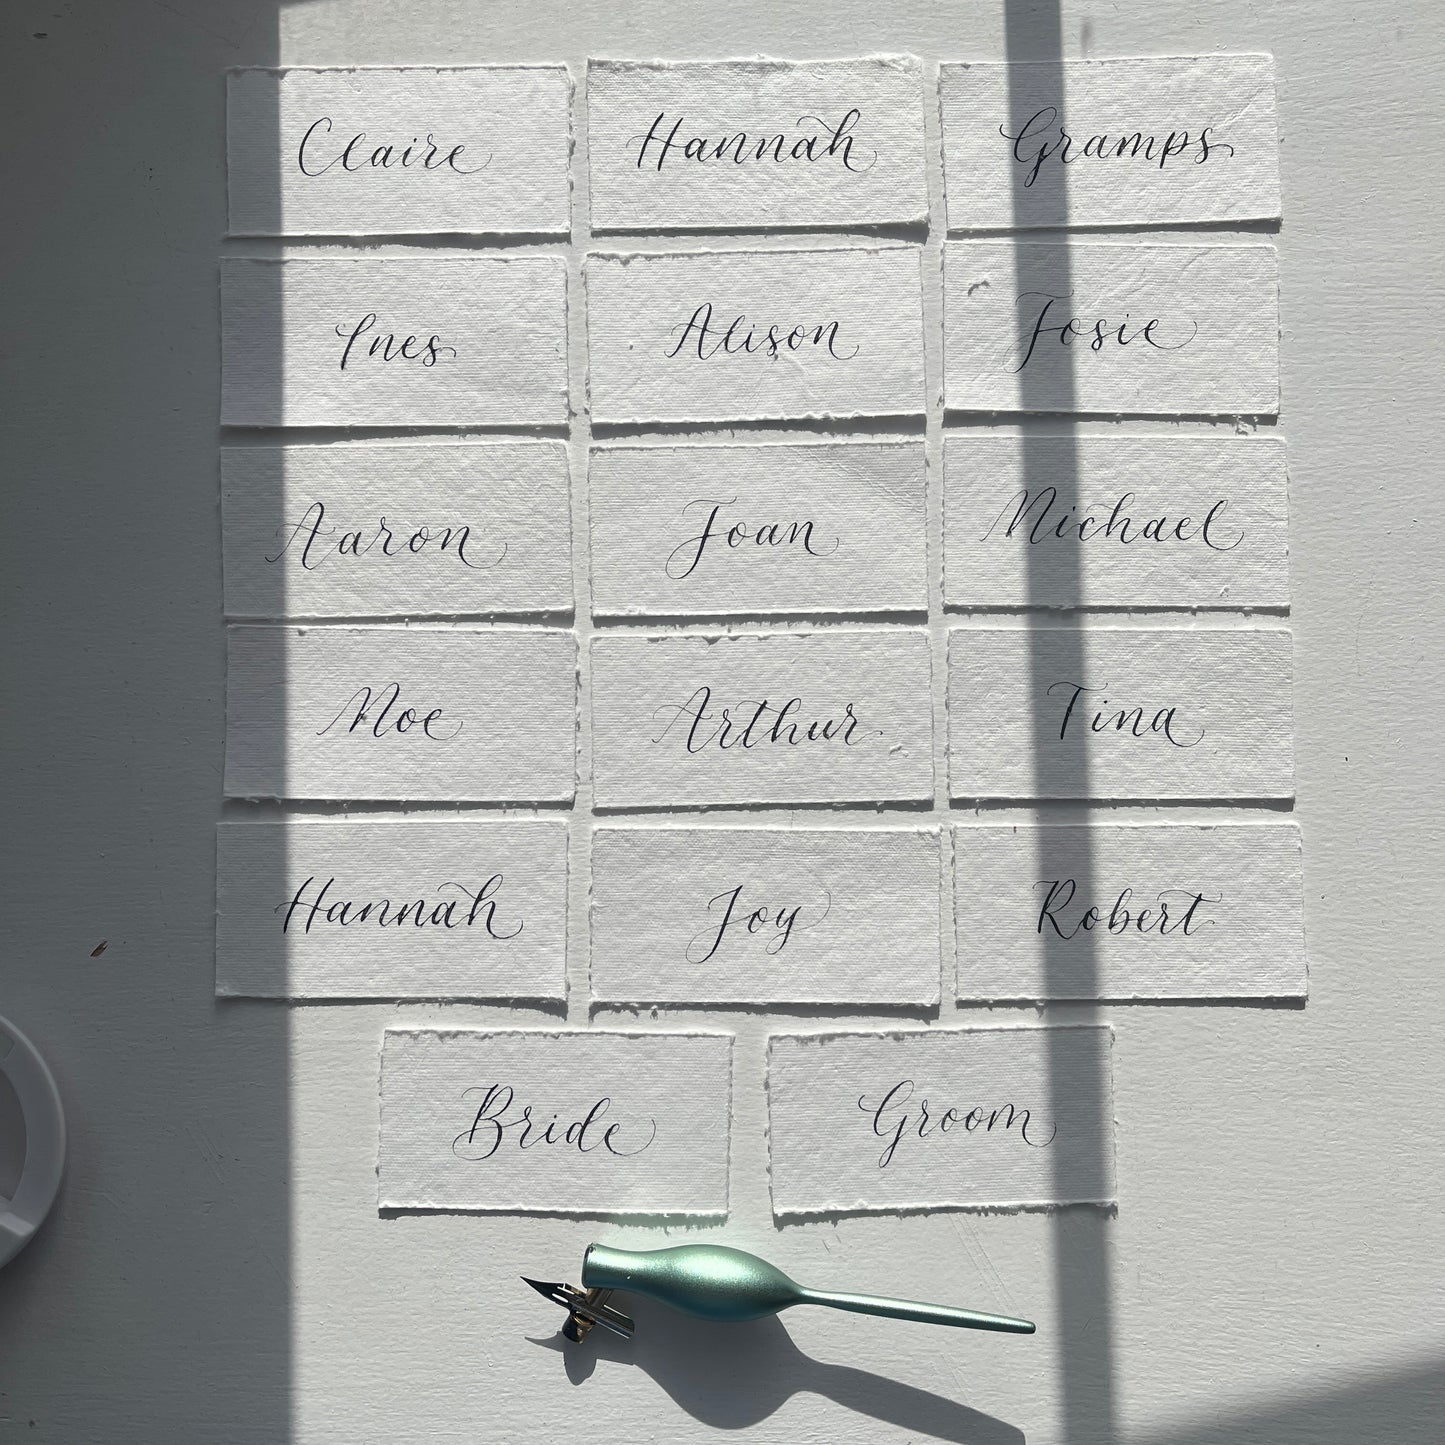 Claire
Hannah
Gramps
Ines
Alison
Josie
Aaron
Joan
Michael
Noe
Arthur
Tina
Hannah
Joy
Robert
Bride
Groom